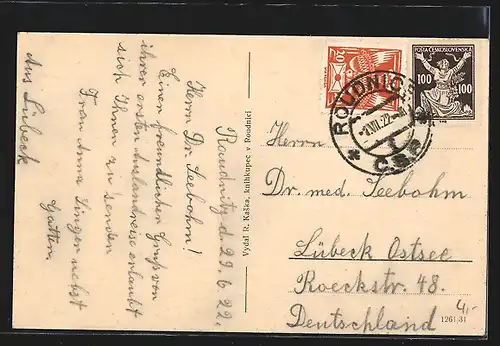 Raudnitz d. 29.6.22.
Herrn Dr. Seebohm!
Einen freundlichen Gruß von
ihrer ersten Auslandreise erlaubt
sich Ihnen zu senden
Frau Anna Singer nebst
Gatten,
Aus Lübeck
Vydal R. Kaška, knihkupec v Roudnici
20
POŠTA ČESKOSLOVENSKÁ
100
100
ROUDNICE
VII.22
ČSP
Herrn
Dr. med. Seebohm
Lübeck Ostsee
Roeckstr. 48.
Deutschland
4,-
1261/31